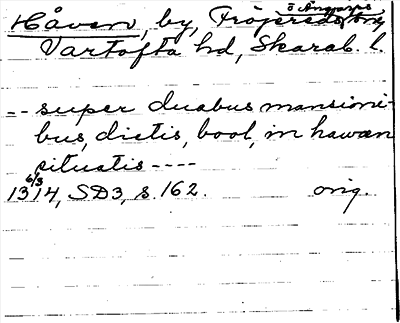 Håven, by, Fröjereds sn,
Ö Ängarps
Vartofta hd, Skarab. l.
-- super duabus mansioni-
bus, dictis, bool, in hawæn
situatis ----
6/3
1314, SD3, s. 162. orig.